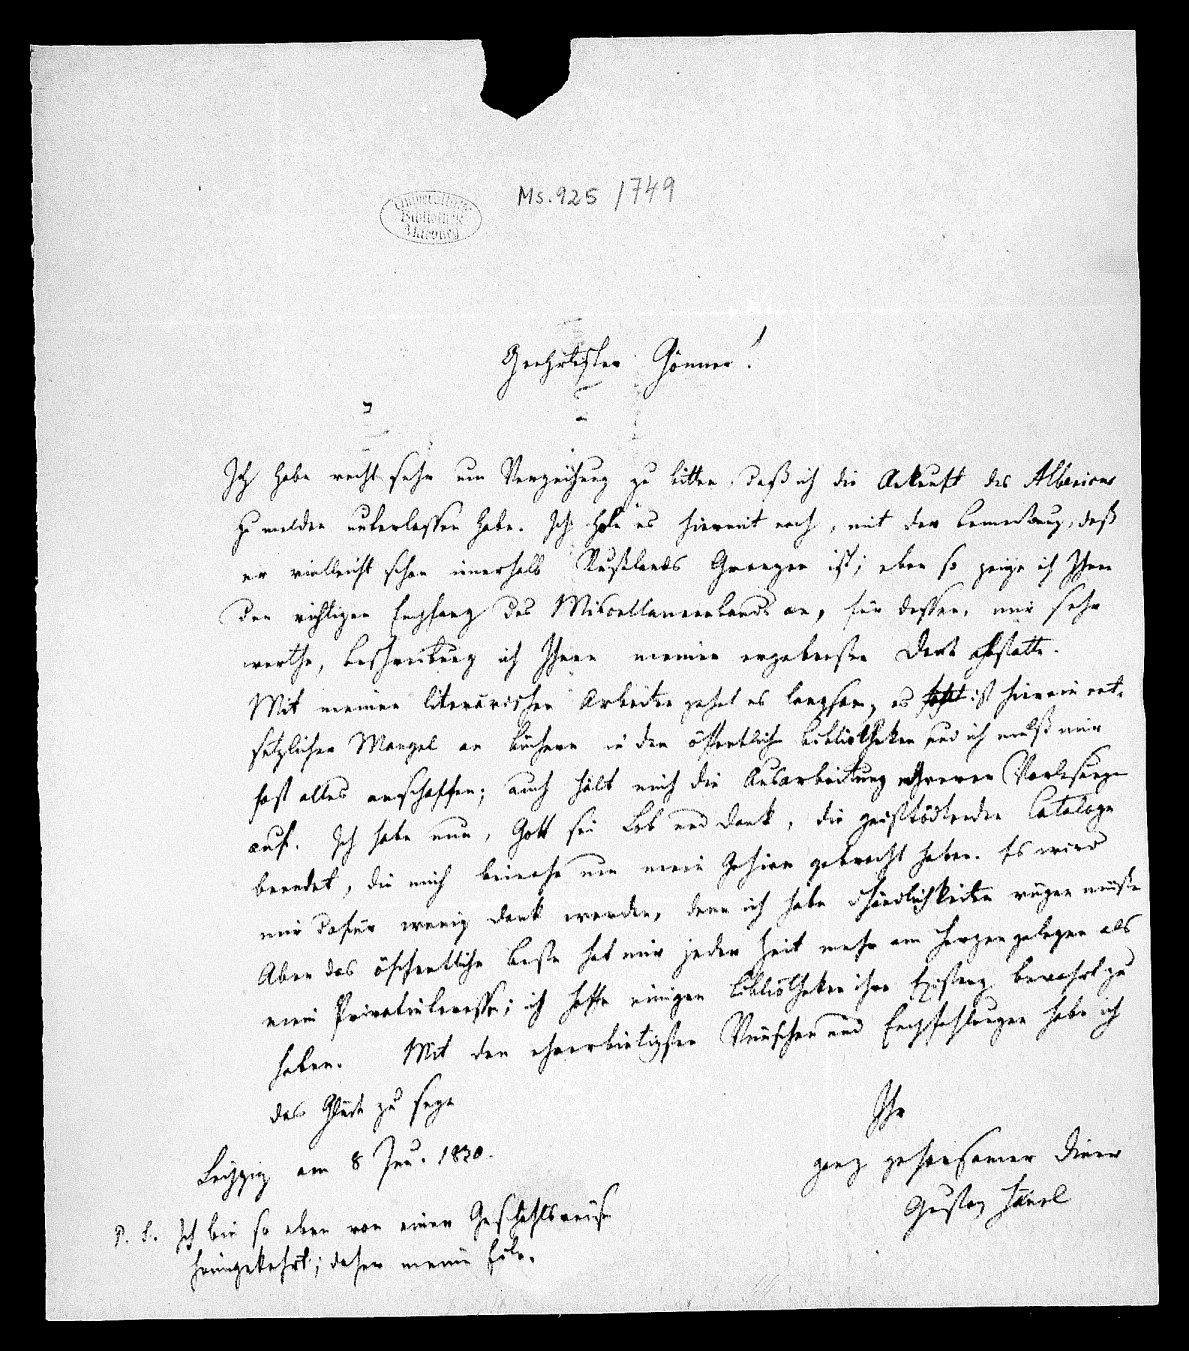 Universitäts-
Bibliothek
Marburg
Ms. 925 /749
Geehrtester Gönner!
Ich habe recht sehr um Verzeihung zu bitten, daß ich die Ankunft des Albericus
zu melden unterlassen habe. Ich hole es hiermit nach, mit der Bemerkung, daß
er vielleicht schon innerhalb Rußlands Grenzen ist; eben so zeige ich Ihnen
den richtigen Empfang des Miscellaneenbands an, für dessen, mir sehr
werthe, Beschreibung ich Ihnen meinen ergebensten Dank abstatte.
Mit meinen literärischen Arbeiten gehet es langsam, es ist hier ein ent-
setzlicher Mangel an Büchern in den öffentlich Bibliotheken und ich muß mir
fast alles anschaffen; auch hält mich die Ausarbeitung mehrerer Vorlesungen
auf. Ich habe nun, Gott sei Lob und Dank, die geisttödtenden Cataloge
beendet, die mich beinahe um mein Gehirn gebracht haben. Es wird
mir dafür wenig Dank werden, denn ich habe Schändlichkeiten rügen müssen
Aber das öffentliche Beste hat mir jeder Zeit mehr am Herzen gelegen als
mein Privatinteresse; ich hoffe einigen Bibliotheken ihre Existenz bewahrt zu
haben. Mit den ehrerbietigsten Wünschen und Empfehlungen habe ich
das Glück zu seyn
Ihr
Leipzig am 8 Jun. 1830.
ganz gehorsamer Diener
Gustav Hänel
P. S. Ich bin so eben von einer Geschäftsreise
heimgekehrt; daher meine Eile.